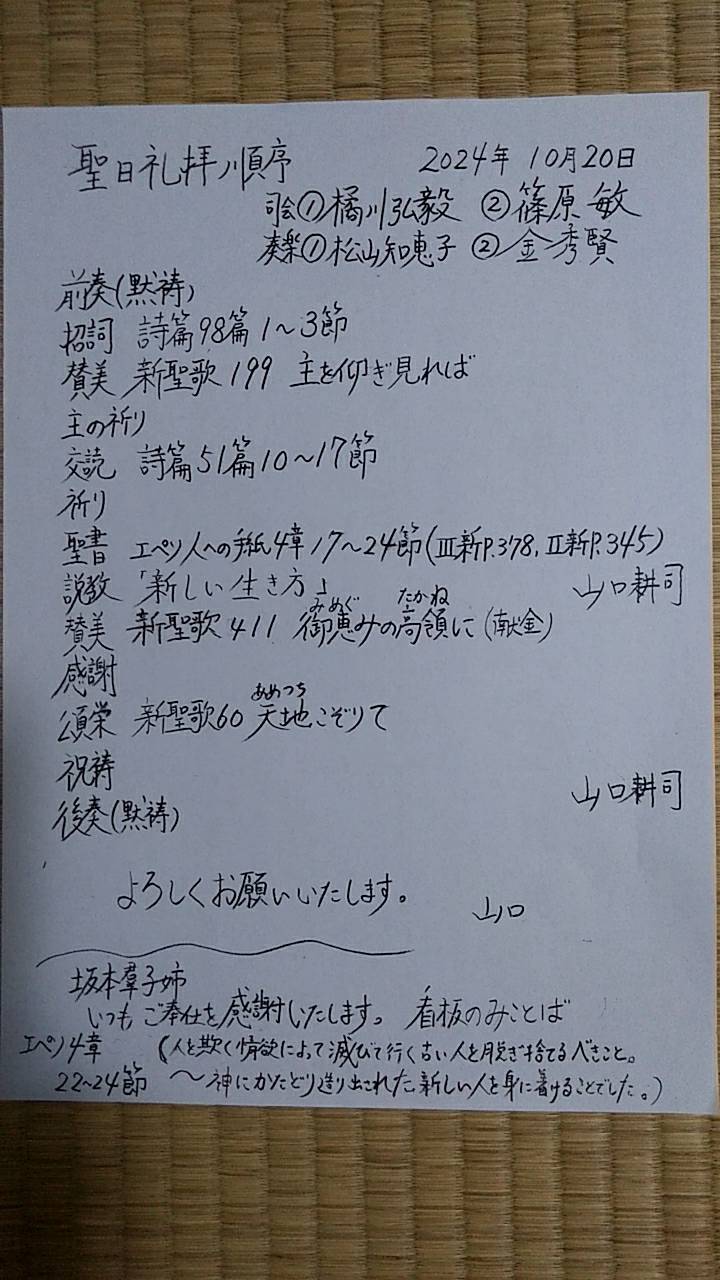 聖日礼拝順序 2024年 10月20日
司会① 橘川弘毅 ② 篠原 敏
奏楽① 松山知恵子 ② 金秀賢
前奏(黙祷)
招詞 詩篇98篇 1〜3節
賛美 新聖歌 199 主を仰ぎ見れば
主の祈り
交読 詩篇51篇10〜17節
祈り
聖書 エペソ人への手紙4章 17〜24節(Ⅲ新P.378, Ⅱ新P.345)
説教 「新しい生き方」 山口耕司
みめぐ たかね
賛美 新聖歌 411 御恵みの高領に (献金)
感謝
あめつち
頌栄 新聖歌60 天地こぞりて
祝祷 山口耕司
後奏(黙祷)
よろしくお願いいたします。 山口
坂本羣子姉
いつも ご奉仕を感謝いたします。 看板のみことば
エペソ4章 (人を欺く情欲によって滅びて行く古い人を脱ぎ捨てるべきこと。
22〜24節 〜神にかたどり造り出された新しい人を身に着けることでした。)